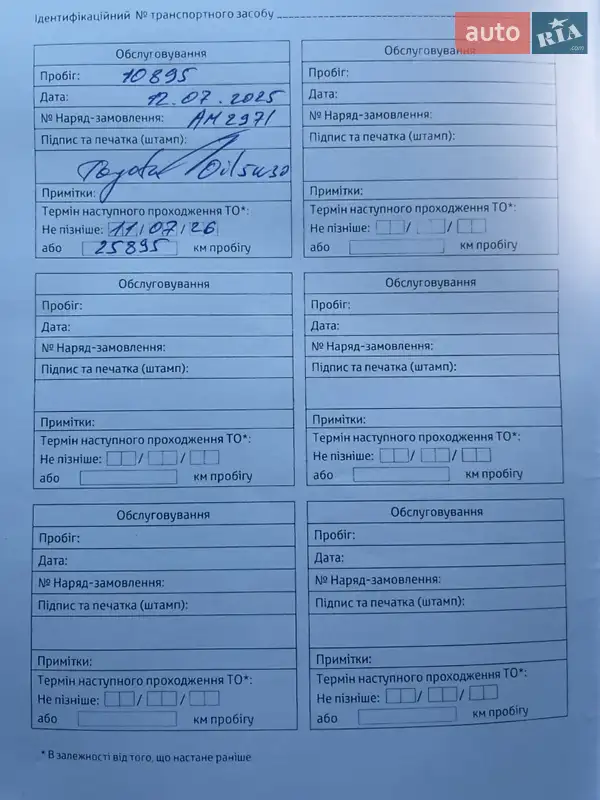 Ідентифікаційний № транспортного засобу
auto RIA .com
Обслуговування
Пробіг: 10895
Дата: 12.07.2025
№ Наряд-замовлення: АМ2971
Підпис та печатка (штамп):
Toyota Oil 5W30
Примітки:
Термін наступного проходження ТО*:
Не пізніше: 11/07/26
або 25895 км пробігу
Обслуговування
Пробіг:
Дата:
№ Наряд-замовлення:
Підпис та печатка (штамп):
Примітки:
Термін наступного проходження ТО*:
Не пізніше: / /
або км пробігу
Обслуговування
Пробіг:
Дата:
№ Наряд-замовлення:
Підпис та печатка (штамп):
Примітки:
Термін наступного проходження ТО*:
Не пізніше: / /
або км пробігу
Обслуговування
Пробіг:
Дата:
№ Наряд-замовлення:
Підпис та печатка (штамп):
Примітки:
Термін наступного проходження ТО*:
Не пізніше: / /
або км пробігу
Обслуговування
Пробіг:
Дата:
№ Наряд-замовлення:
Підпис та печатка (штамп):
Примітки:
Термін наступного проходження ТО*:
Не пізніше: / /
або км пробігу
Обслуговування
Пробіг:
Дата:
№ Наряд-замовлення:
Підпис та печатка (штамп):
Примітки:
Термін наступного проходження ТО*:
Не пізніше: / /
або км пробігу
* В залежності від того, що настане раніше